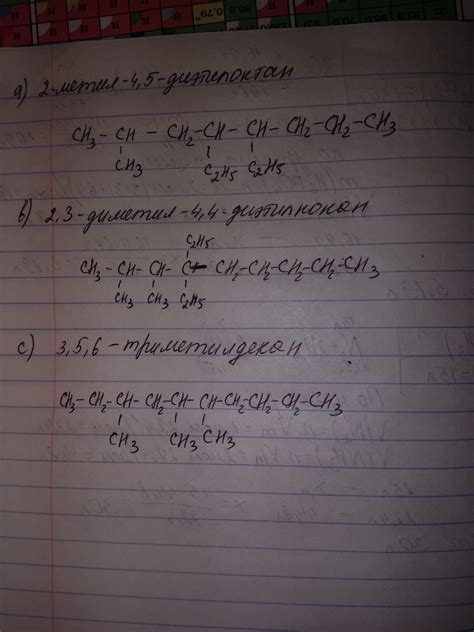 a) 2-метил-4,5-диэтилоктан
CH3-CH-CH2-CH-CH-CH2-CH2-CH3
CH3 C2H5 C2H5
b) 2,3-диметил-4,4-диэтилнонан
C2H5
CH3-CH-CH-C-CH2-CH2-CH2-CH2-CH3
CH3 CH3 C2H5
c) 3,5,6-триметилдекан
CH3-CH2-CH-CH2-CH-CH-CH2-CH2-CH2-CH3
CH3 CH3 CH3